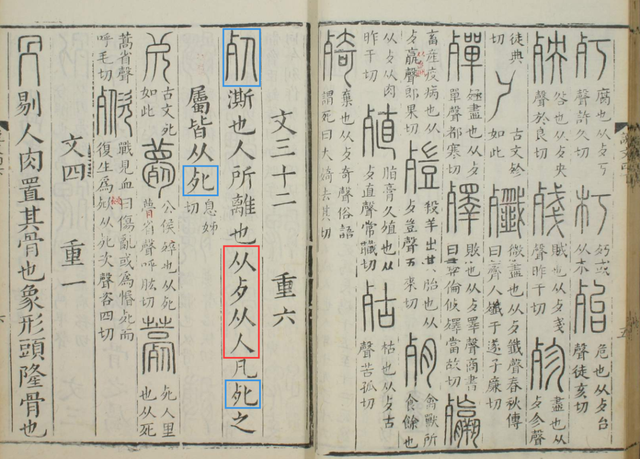 𣦼腐也从歺丂聲許久切朽𣦼或从木殆危也从歺台聲徒亥切
殃咎也从歺央聲於良切殘賊也从歺戔聲昨干切殄盡也从歺㐱聲
徒典切古文殄如此殲微盡也从歺韱聲春秋傳曰齊人殲于遂子廉切
殫殛盡也从歺單聲都寒切殬敗也从歺睪聲商書曰彝倫攸殬當故切
畜產疫病也从歺羸聲郎果切殺羊出其胎也从歺豈聲五來切禽獸所食餘也
从歺从肉昨干切殖脂膏久殖也从歺直聲常職切枯也从歺古聲苦孤切
棄也从歺奇聲俗語謂死曰大𣨙去其切
文三十二 重六
死澌也人所離也从歺从人凡死之
屬皆从死息姊切
古文死如此薨公侯𣨛也从死瞢省聲呼肱切薧死人里也从死
蒿省聲呼毛切㱹戰見血曰傷亂或為惛死而復生為㱹从死次聲咨四切
文四 重一
冎剔人肉置其骨也象形頭隆骨也